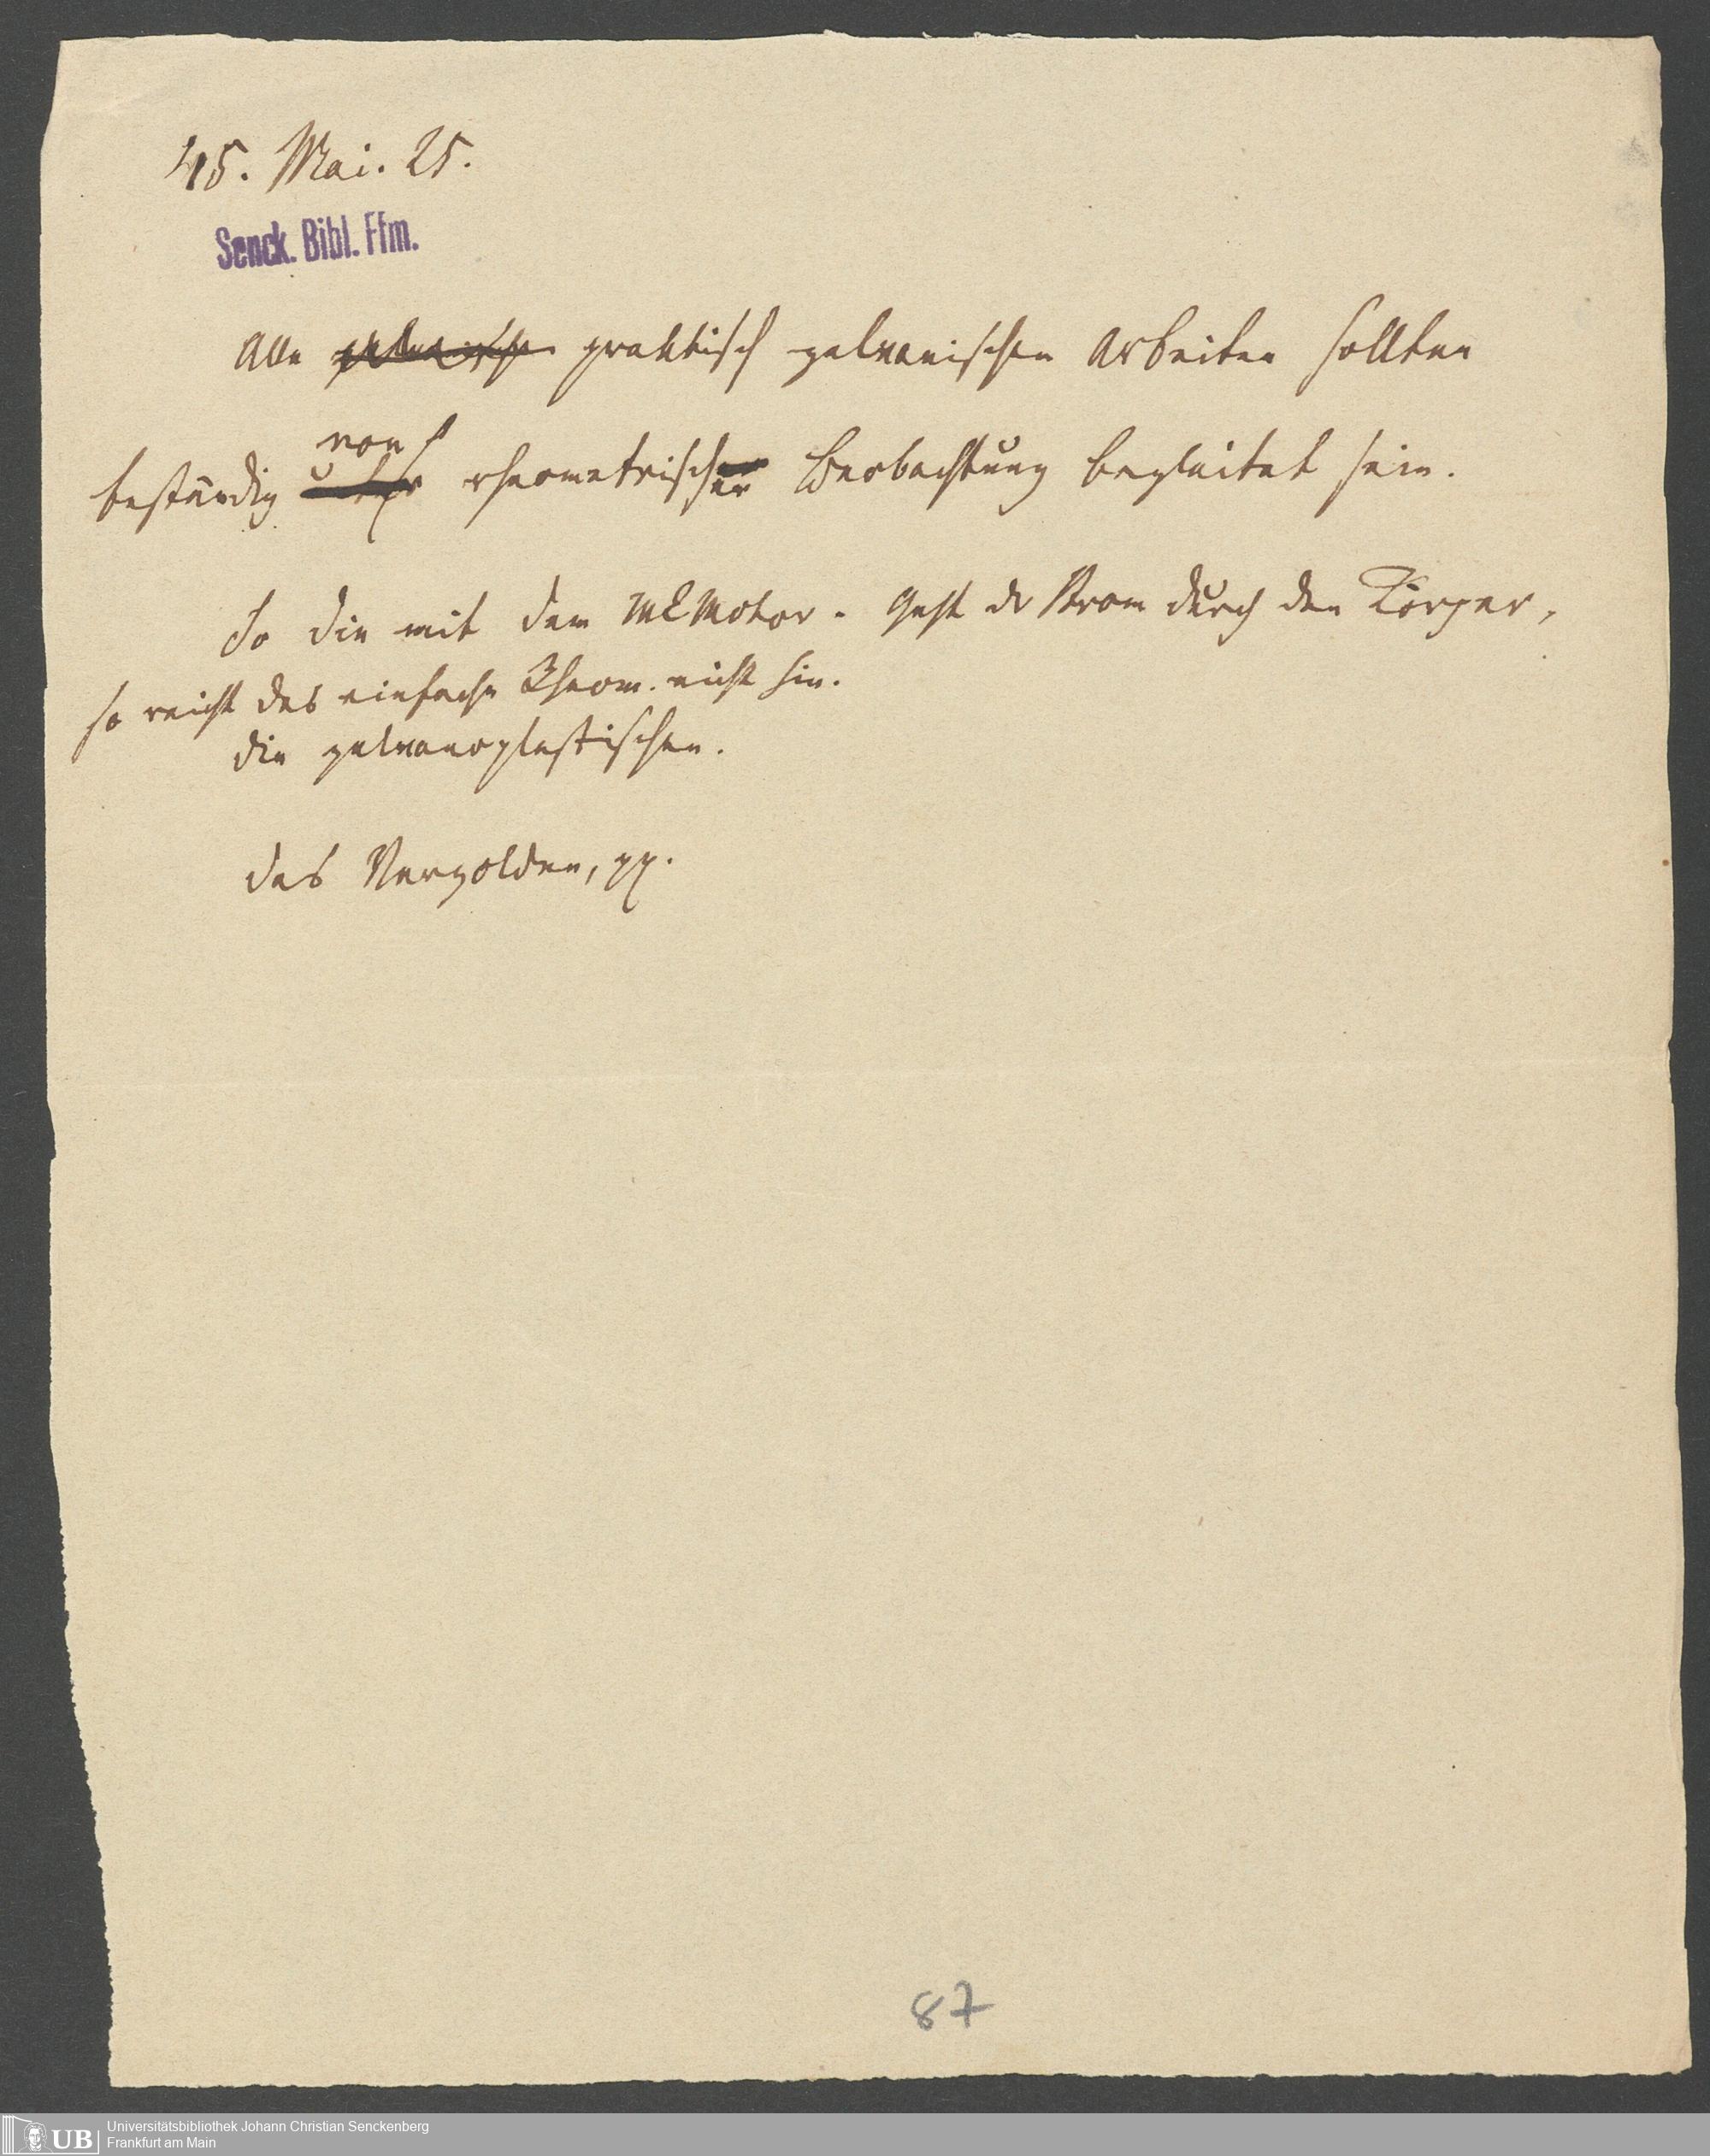 45. Mai. 25.
Senck. Bibl. Ffm.
Alle galvanische praktisch galvanischen Arbeiten sollten
von
beständig unter rheometrischer Beobachtung begleitet sein.
So die mit dem MEMotor. Geht dr Strom durch den Körper,
so reicht das einfache Rheom. nicht hin.
die galvanoplastischen.
das Vergolden, pp.
87
UB
Universitätsbibliothek Johann Christian Senckenberg
Frankfurt am Main